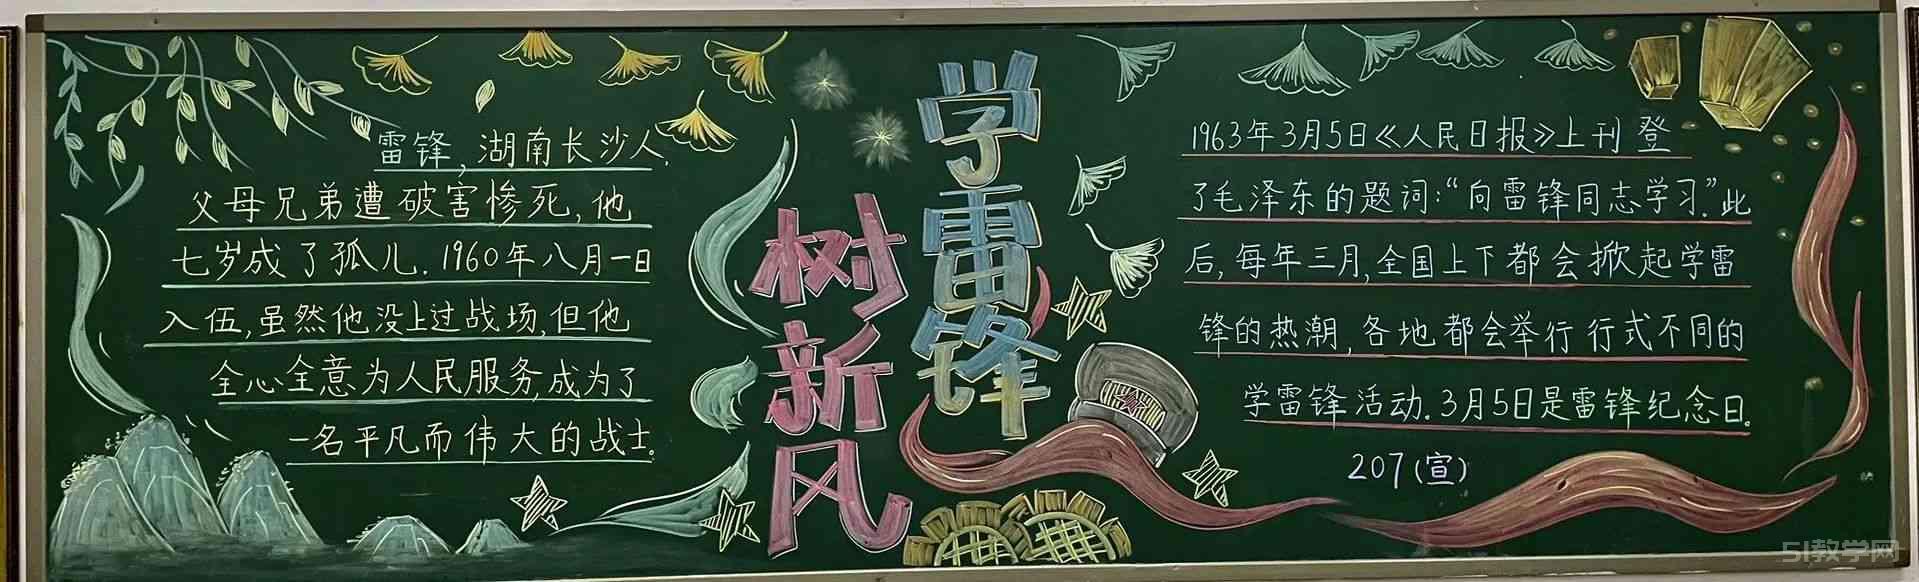 雷锋,湖南长沙人.
父母兄弟遭破害惨死,他
七岁成了孤儿.1960年八月一日
入伍,虽然他没上过战场,但他
全心全意为人民服务,成为了
一名平凡而伟大的战士.
学雷锋
树新风
1963年3月5日《人民日报》上刊登
了毛泽东的题词:“向雷锋同志学习”.此
后,每年三月,全国上下都会掀起学雷
锋的热潮,各地都会举行行式不同的
学雷锋活动.3月5日是雷锋纪念日.
207(宣)
51教学网